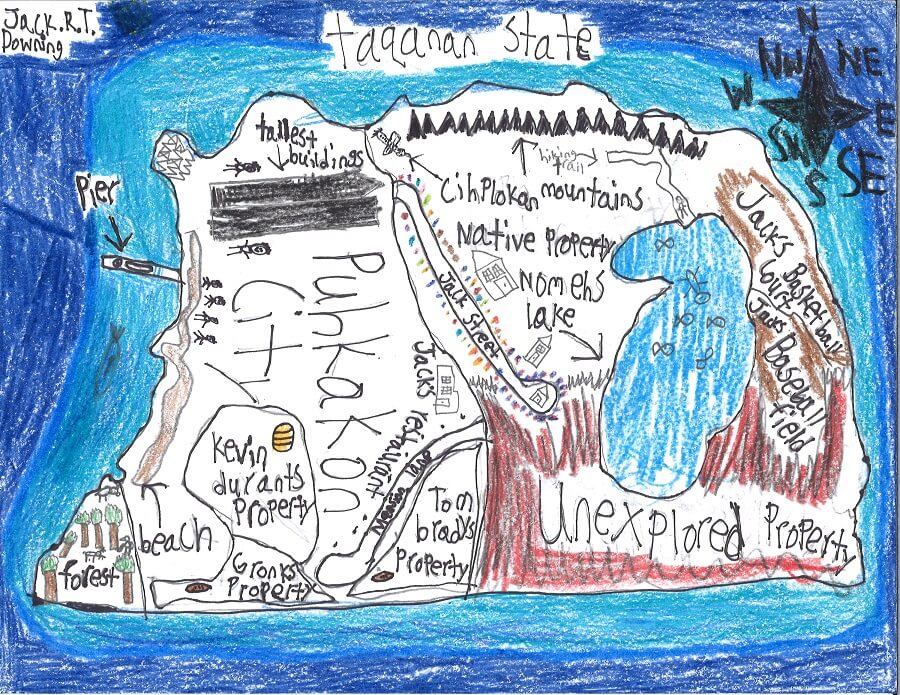 Jack.R.T.
Downing
taqanan State
N
NW
NE
W
E
SW
SE
S
tallest
buildings
Pier
hiking
trail
Cihplokan mountains
Native Property
Nomehs
lake
Jack Street
Jacks Basketball
court
Jacks Baseball
field
Punkakon
City
Jacks restaurant
lane
Kevin
durants
Property
Tom
bradys
Property
Gronks
Property
beach
forest
Unexplored Property